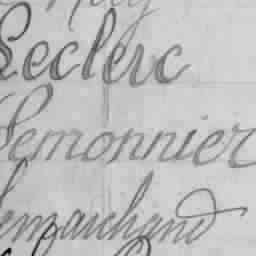 Leclerc
Lemonnier
Lemarchand